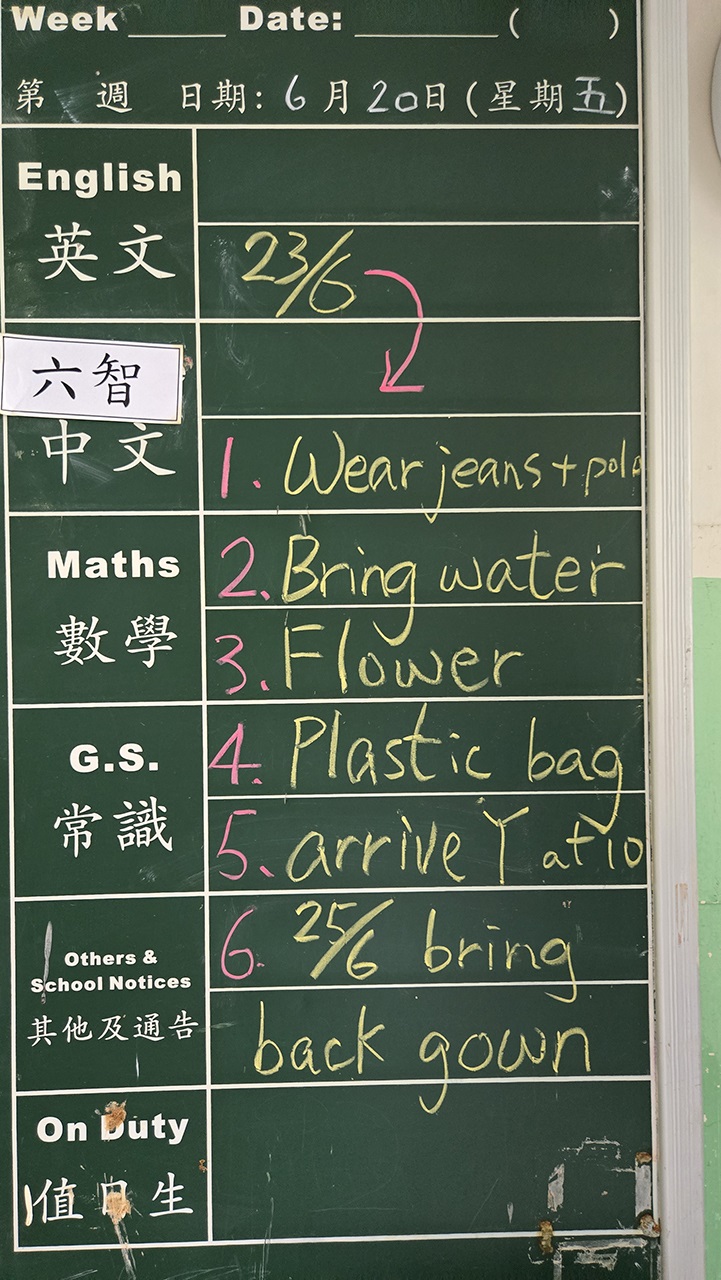 Week Date: ( )
第 週 日期: 6月20日(星期五)
English
英文
23/6
六智
中文
1. Wear jeans + polo
Maths
2. Bring water
數學
3. Flower
G.S.
4. Plastic bag
常識
5. arrive Y at 10
Others &
School Notices
6. 25/6 bring
其他及通告
back gown
On Duty
值日生